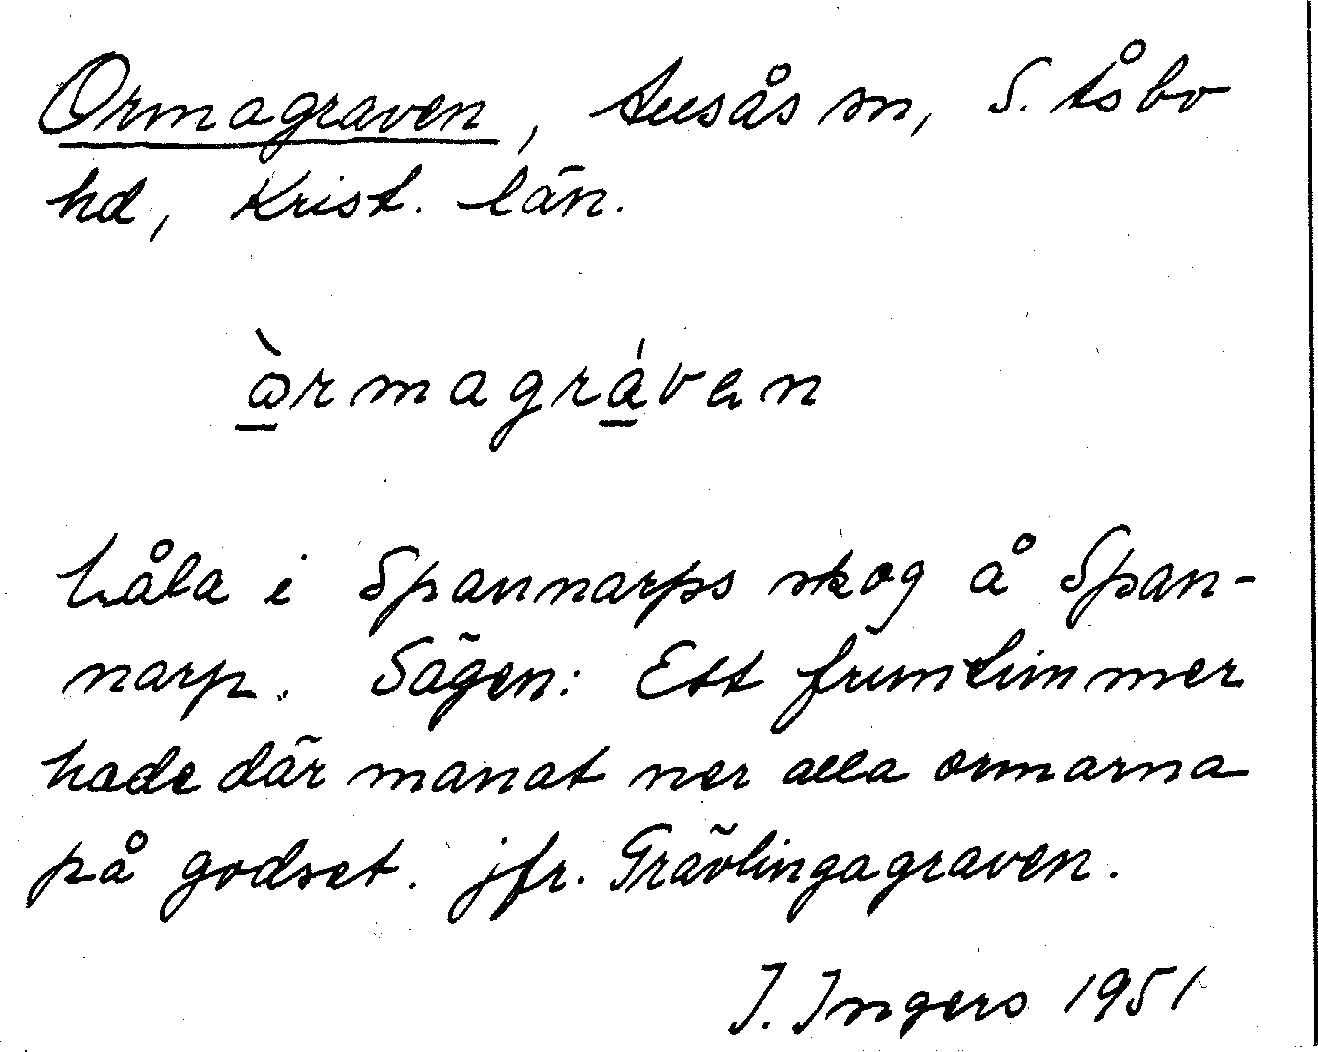 Ormagraven, Ausås sn, S. Åsbo
hd, Krist. län.
ò̱rmagrá̱ven
Håla i Spannarps skog å Span-
narp. Sägen: Ett fruntimmer
hade där manat ner alla ormarna
på godset. jfr. Grävlingagraven.
I. Ingers 1951